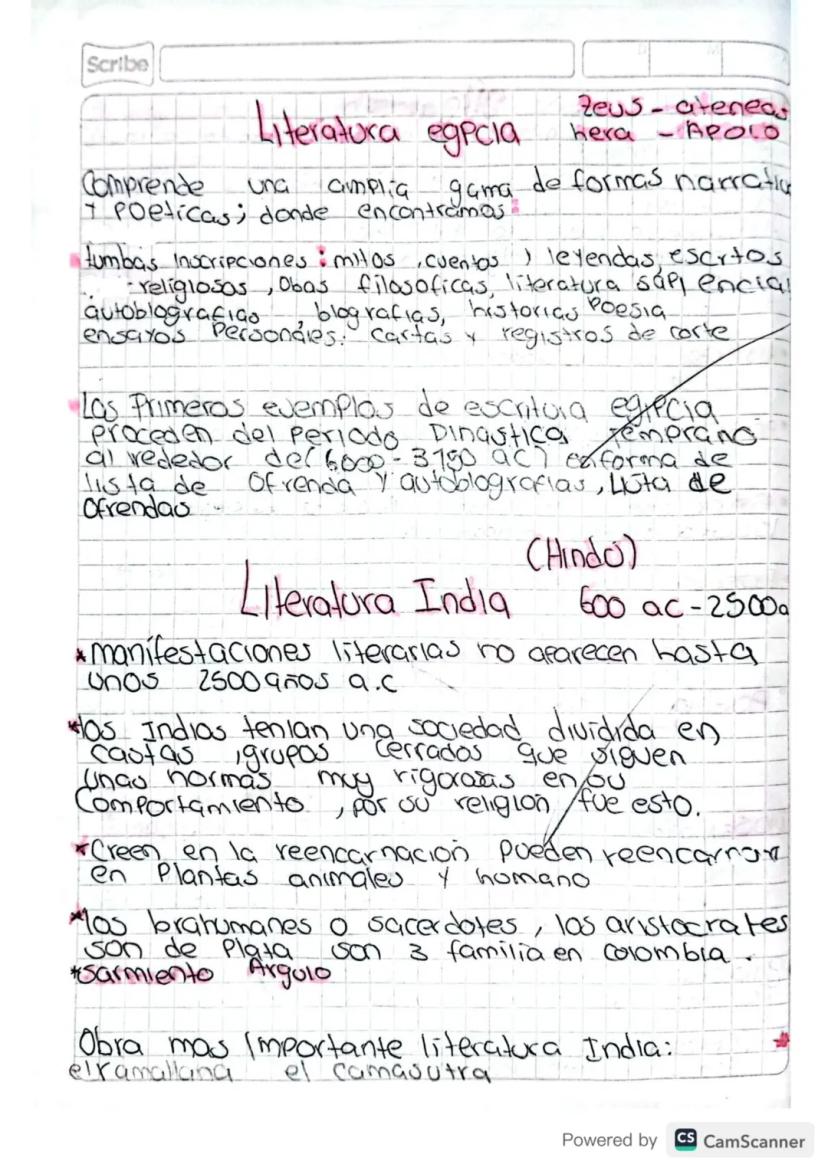 Scribe
Zeus - ateneas
Literatura egpcia hera - APOLO
Comprende una amplia gama de formas narrativ
y Poeticas; donde encontramos:
tumbas Inscripciones: mitos, cuentos, leyendas, escrtos
religiosos, Obas filosoficas, literatura sapi encial
autobiografias, biografias, historias Poesia
ensayos Personales. cartas y registros de corte
Los Primeros ejemplos de escritura egipcia
proceden del Periodo Dinastica temprano
al rededor de( 6000 - 3150 ac) en forma de
lista de Ofrenda y autobiografias, Lista de
Ofrendas
(Hindú)
Literatura India 600 ac - 2500a
* manifestaciones literarias no aparecen hasta
unos 2500 años a.c
* los Indios tenian una sociedad dividida en
castas, grupos cerrados que siguen
unas normas muy rigorosas en su
Comportamiento, por su religion fue esto.
* Creen en la reencarnacion pueden reencarnar
en Plantas animales y humano
* los brahumanes o sacerdotes, los aristocrates
son de Plata son 3 familia en colombia.
* Sarmiento Argulo
Obra mas Importante literatura India: *
el ramallana el camasutra
Powered by CS CamScanner